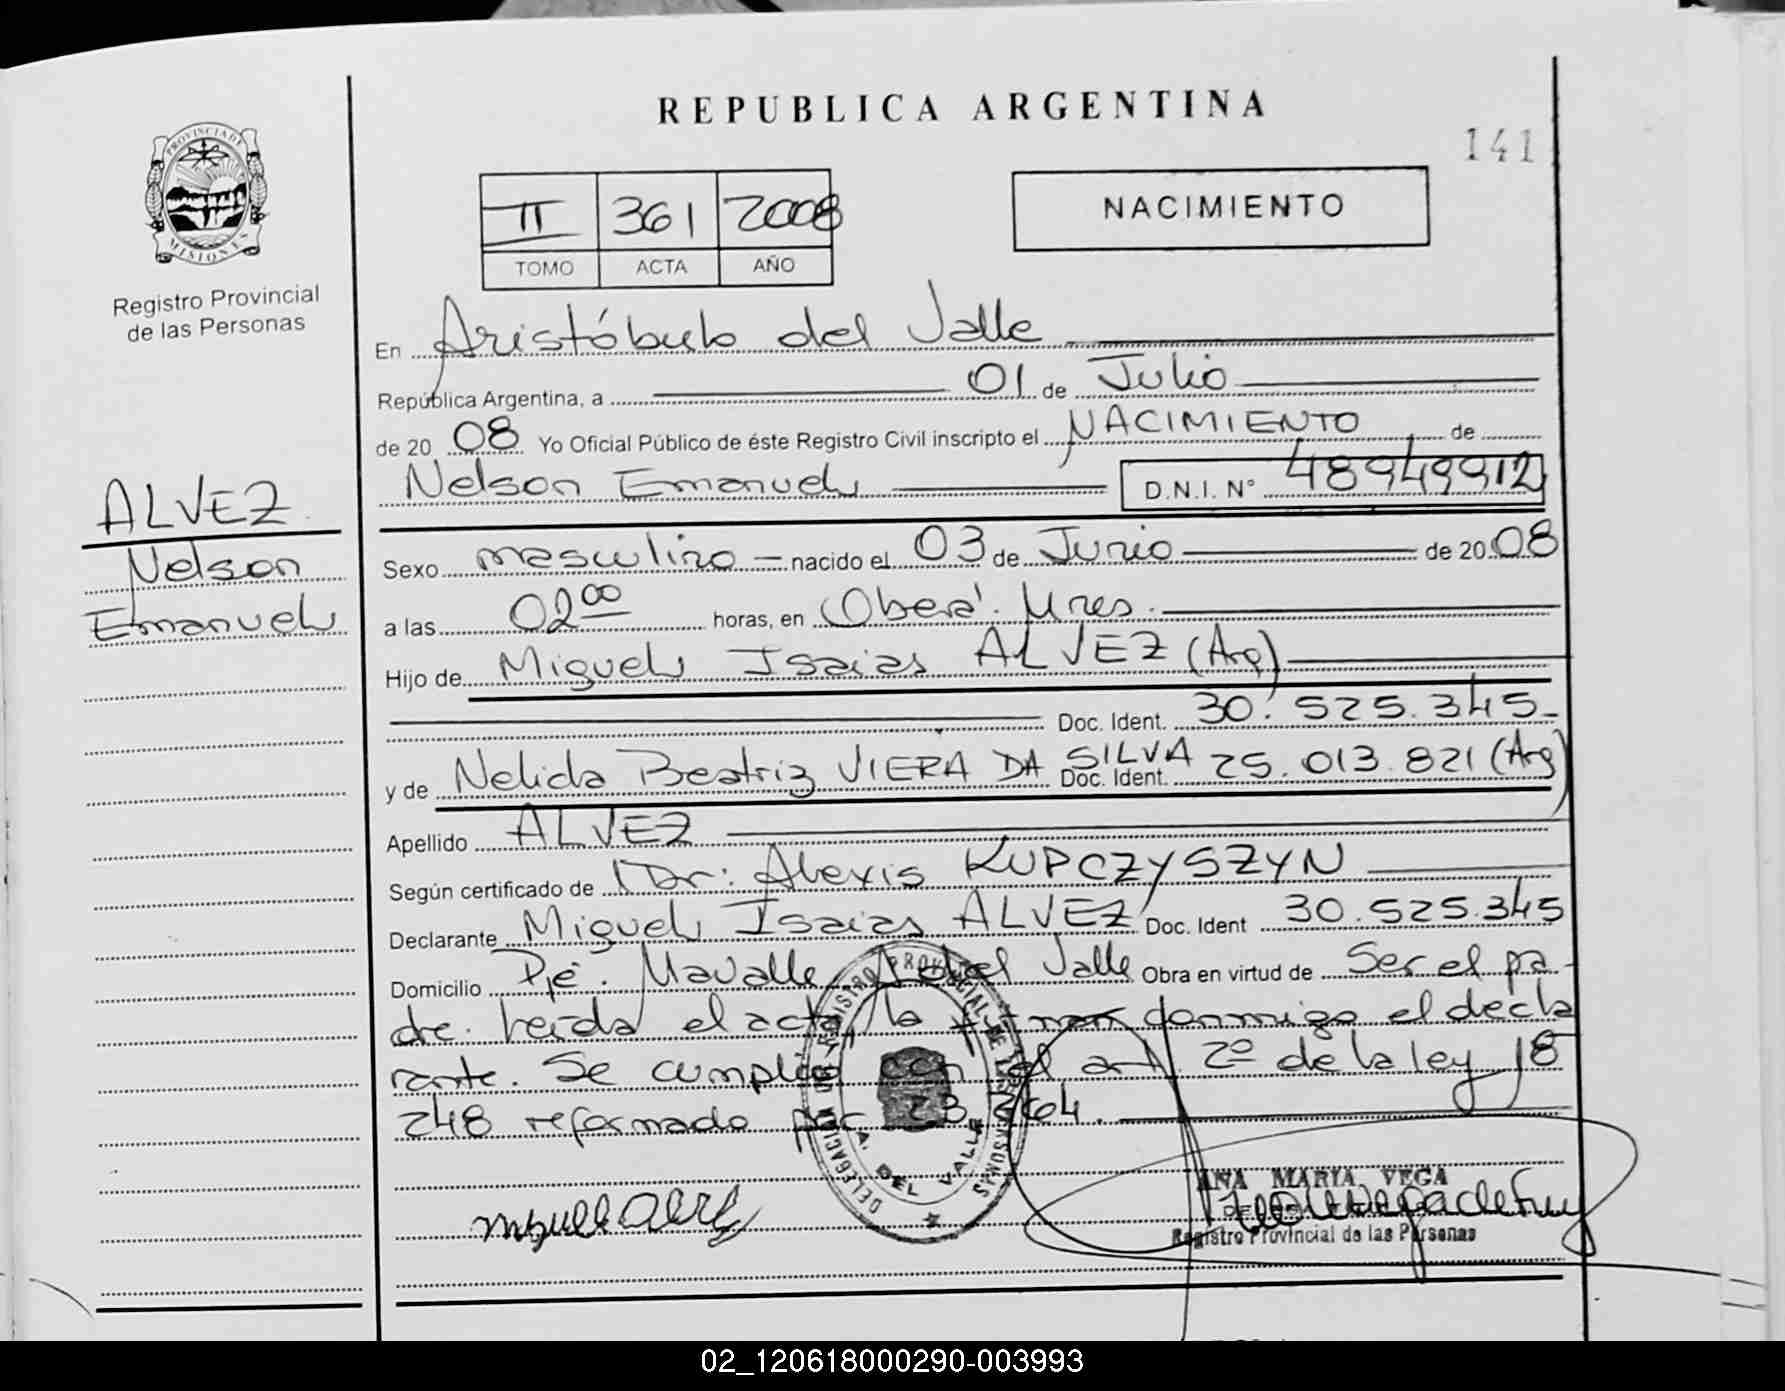 REPUBLICA ARGENTINA
141
PROVINCIA DE
MISIONES
Registro Provincial
de las Personas
II 361 2008
TOMO ACTA AÑO
NACIMIENTO
En Aristóbulo del Valle
República Argentina, a 01 de Julio
de 20 08 Yo Oficial Público de éste Registro Civil inscripto el NACIMIENTO de
Nelson Emanuel D.N.I. N° 48949912
ALVEZ
Nelson
Emanuel
Sexo masculino nacido el 03 de Junio de 20 08
a las 02 00 horas, en Oberá. Mnes.
Hijo de Miguel Isaias ALVEZ (Arg)
Doc. Ident. 30.525.345
y de Nelida Beatriz VIERA DA SILVA Doc. Ident. 25.013.821 (Arg)
Apellido ALVEZ
Según certificado de Dr: Alexis KUPCZYSZYN
Declarante Miguel Isaias ALVEZ Doc. Ident 30.525.345
Domicilio Pje. Mavalle A. del Valle Obra en virtud de Ser el pa-
dre. Leida el acta, la firman conmigo el decla
rante. Se cumplió con el art. 2º de la ley 18
248 reformado por 23264.
REGISTRO PROVINCIAL DE LAS PERSONAS
DELEGACION
A. DEL VALLE
ANA MARIA VEGA
Registro Provincial de las Personas
02_120618000290-003993